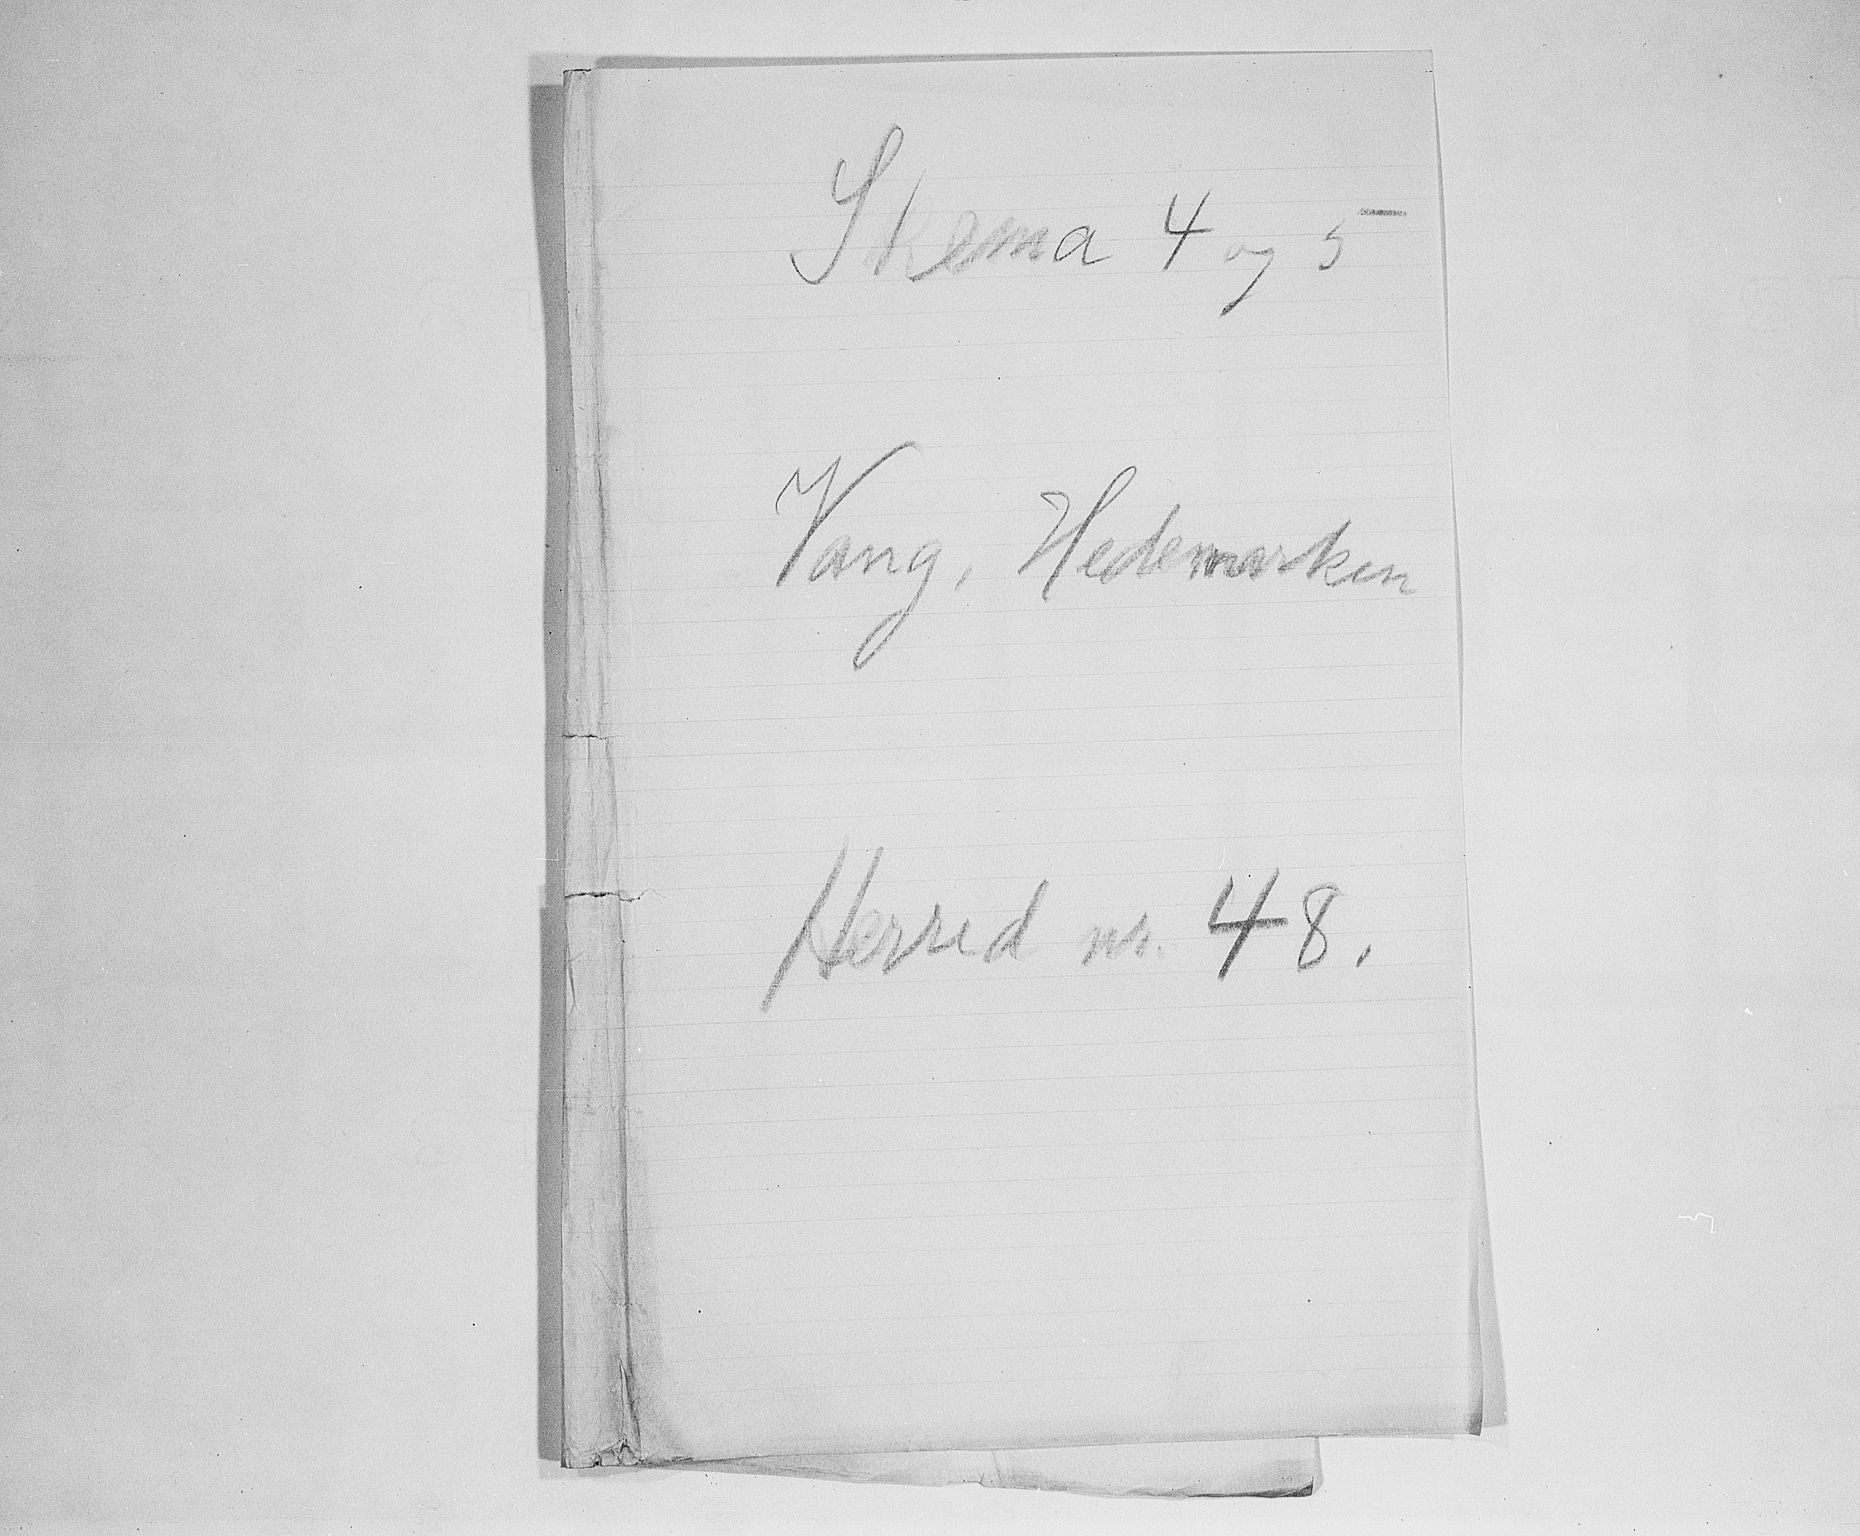 Skema 4 og 5
Vang, Hedemarken
Herred nr. 48.